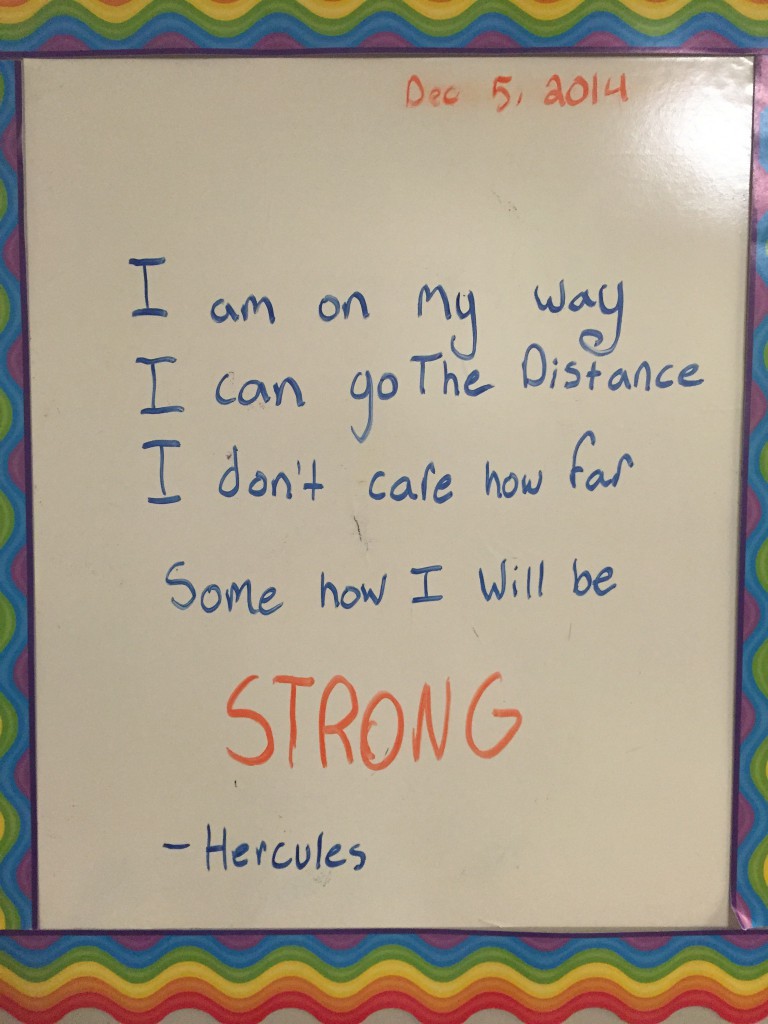 Dec 5, 2014
I am on my way
I can go The Distance
I don't care how far
Some how I Will be
STRONG
- Hercules